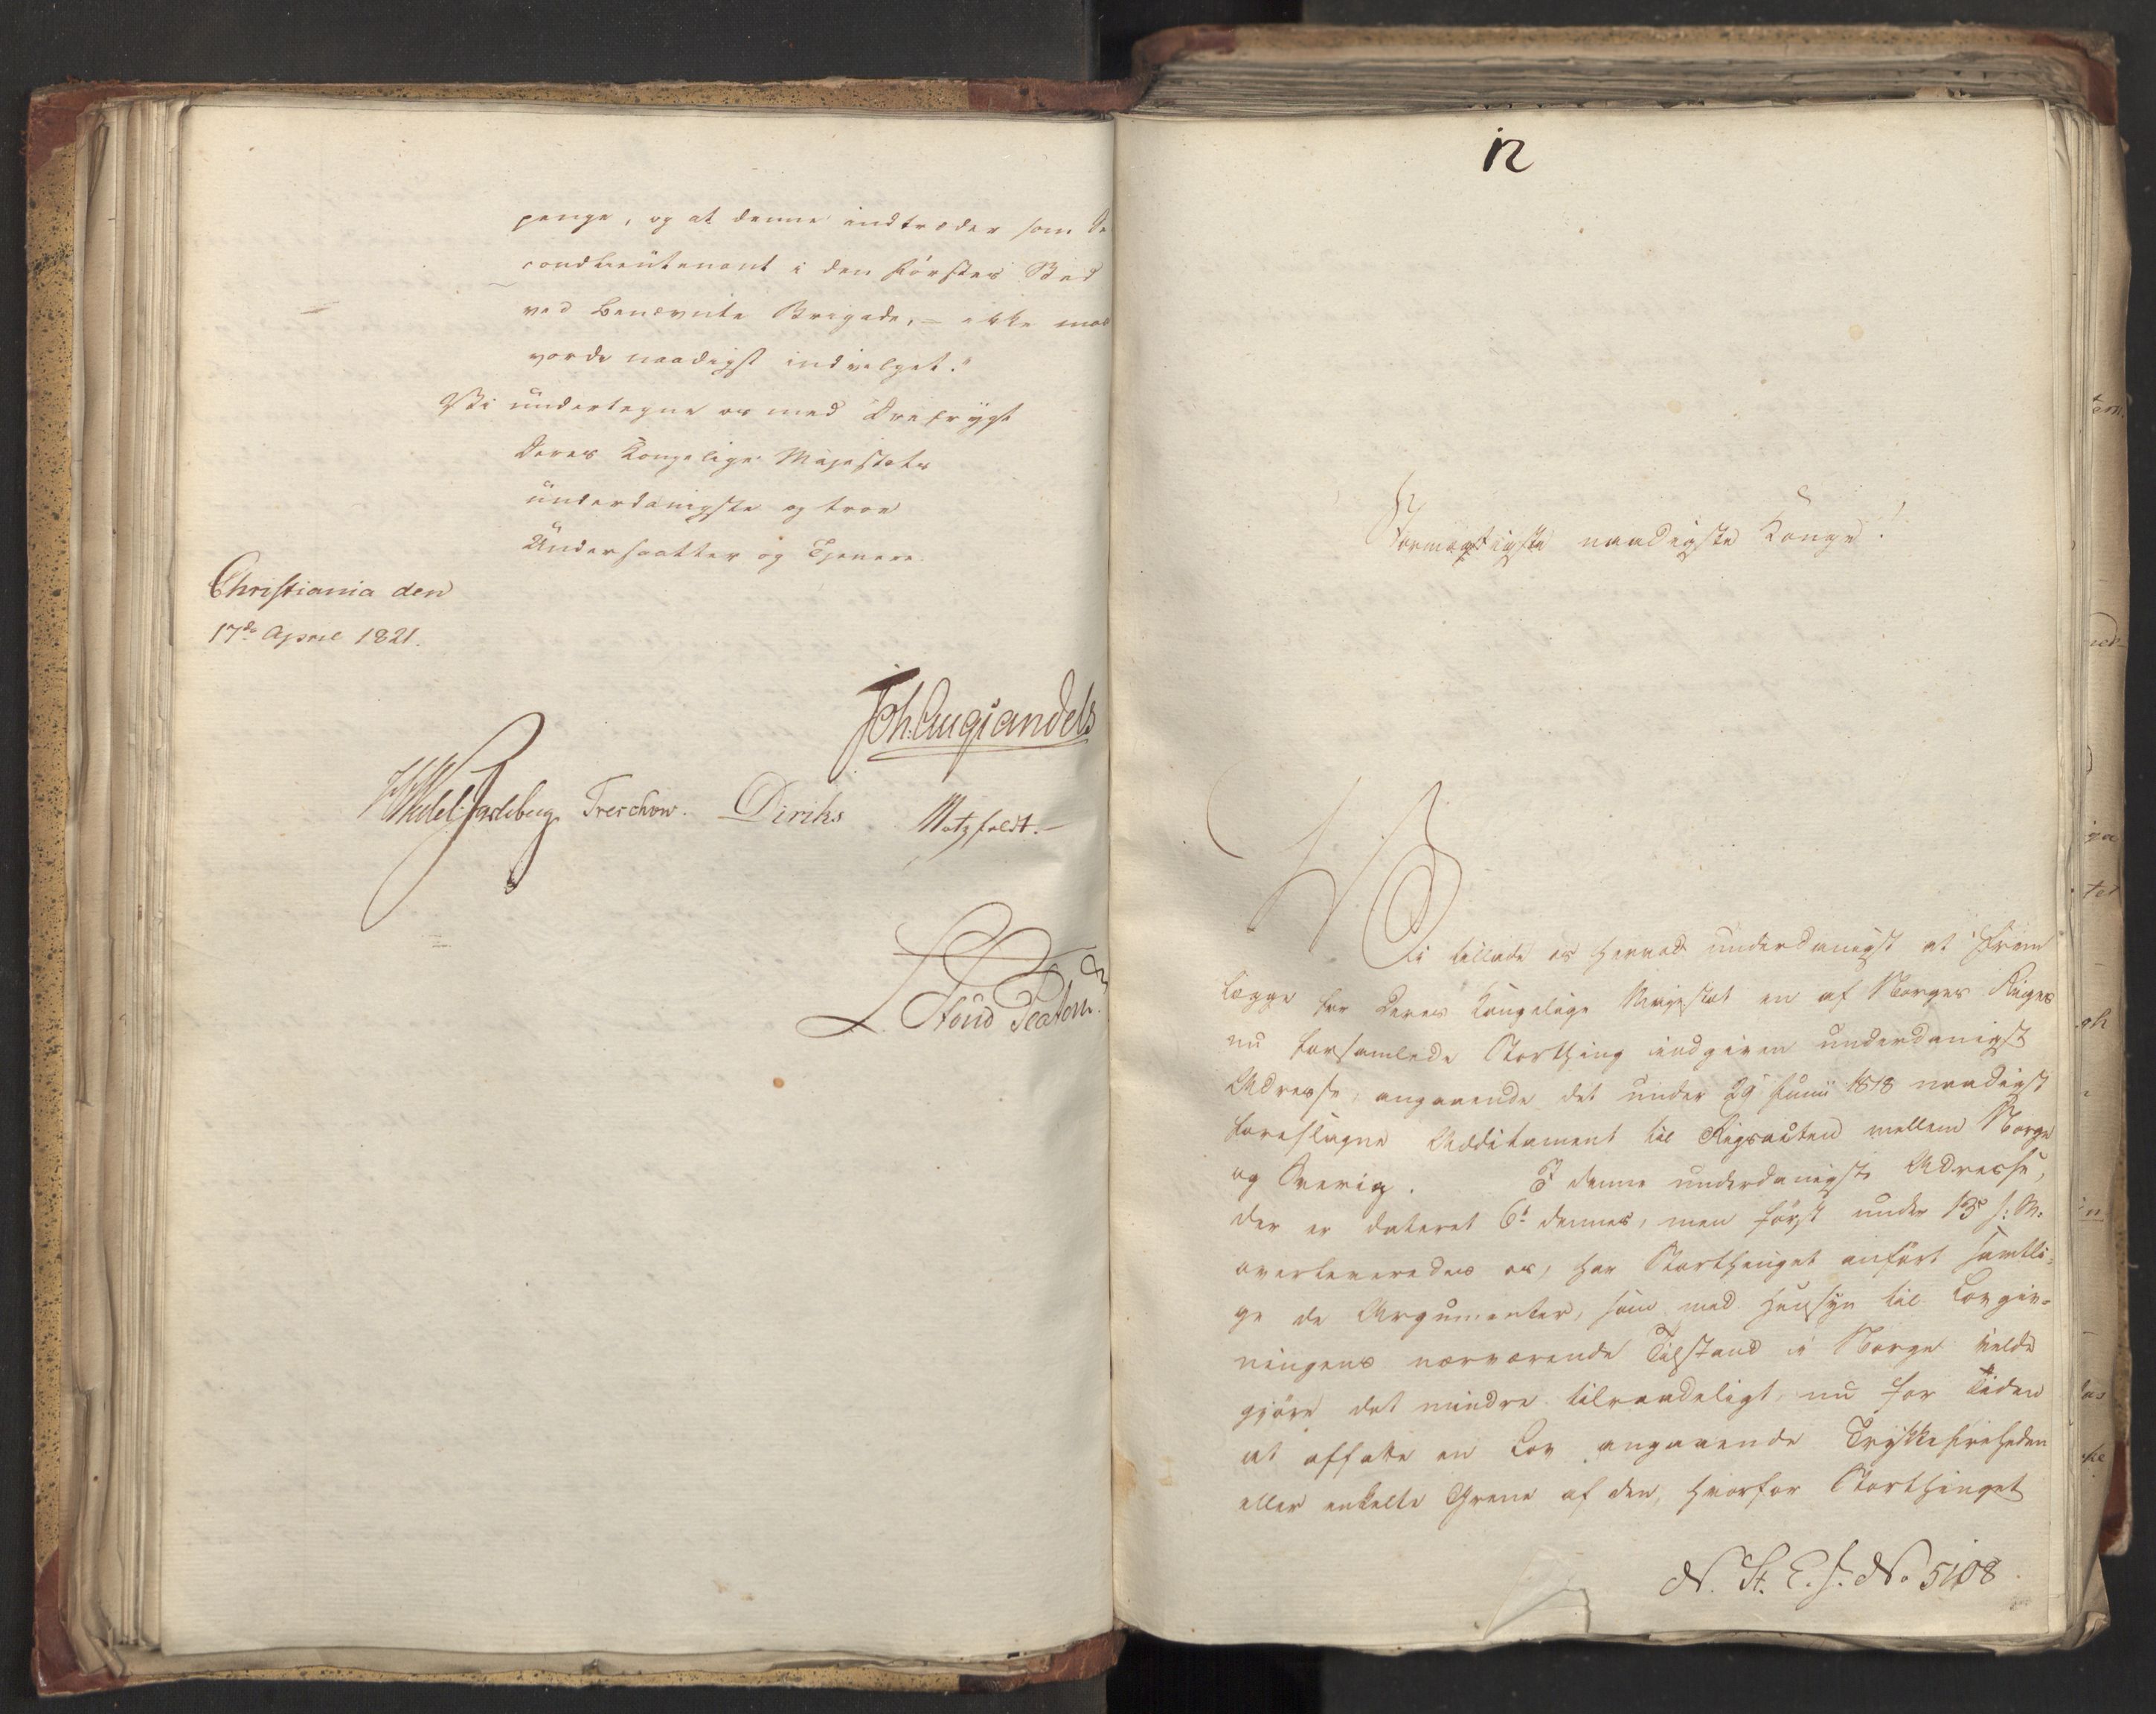 penge, og at denne indtræder som Se
condlieutenant i den Førstes Sted
ved benævnte Brigade, – ikke maa
vorde naadigst indvilget."
Vi undertegne os med Ærefrygt
Deres Kongelige Majestæts
underdanigste og troe
Undersaatter og Tjenere.
Christiania den
17de April 1821.
Joh. Aug. Sandels
HWedel Jarlsberg Treschow. Diriks Motzfeldt.
L. Stoud Platou
12
Stormægtigste naadigste Konge!
Vi tillade os herved underdanigst at frem
lægge for Deres Kongelige Majestæt en af Norges Riges
nu forsamlede Storthing indgiven underdanigst
Adresse, angaaende det under 29 Junii 1818 naadigst
foreslagne Additament til Rigsacten mellem Norge
og Sverig. I denne underdanigste Adresse,
der er dateret 6t dennes, men først under 13 s: M:
overleveredes os, har Storthinget anført samtli-
ge de Argumenter, som med Hensyn til Lovgiv-
ningens nærværende Tilstand i Norge
gjøre det mindre tilraadeligt nu for Tiden
at affatte en Lov angaaende Trykkefriheden
eller enkelte Grene af den, hvorfor Storthinget
N. St. E. J. No 5108.